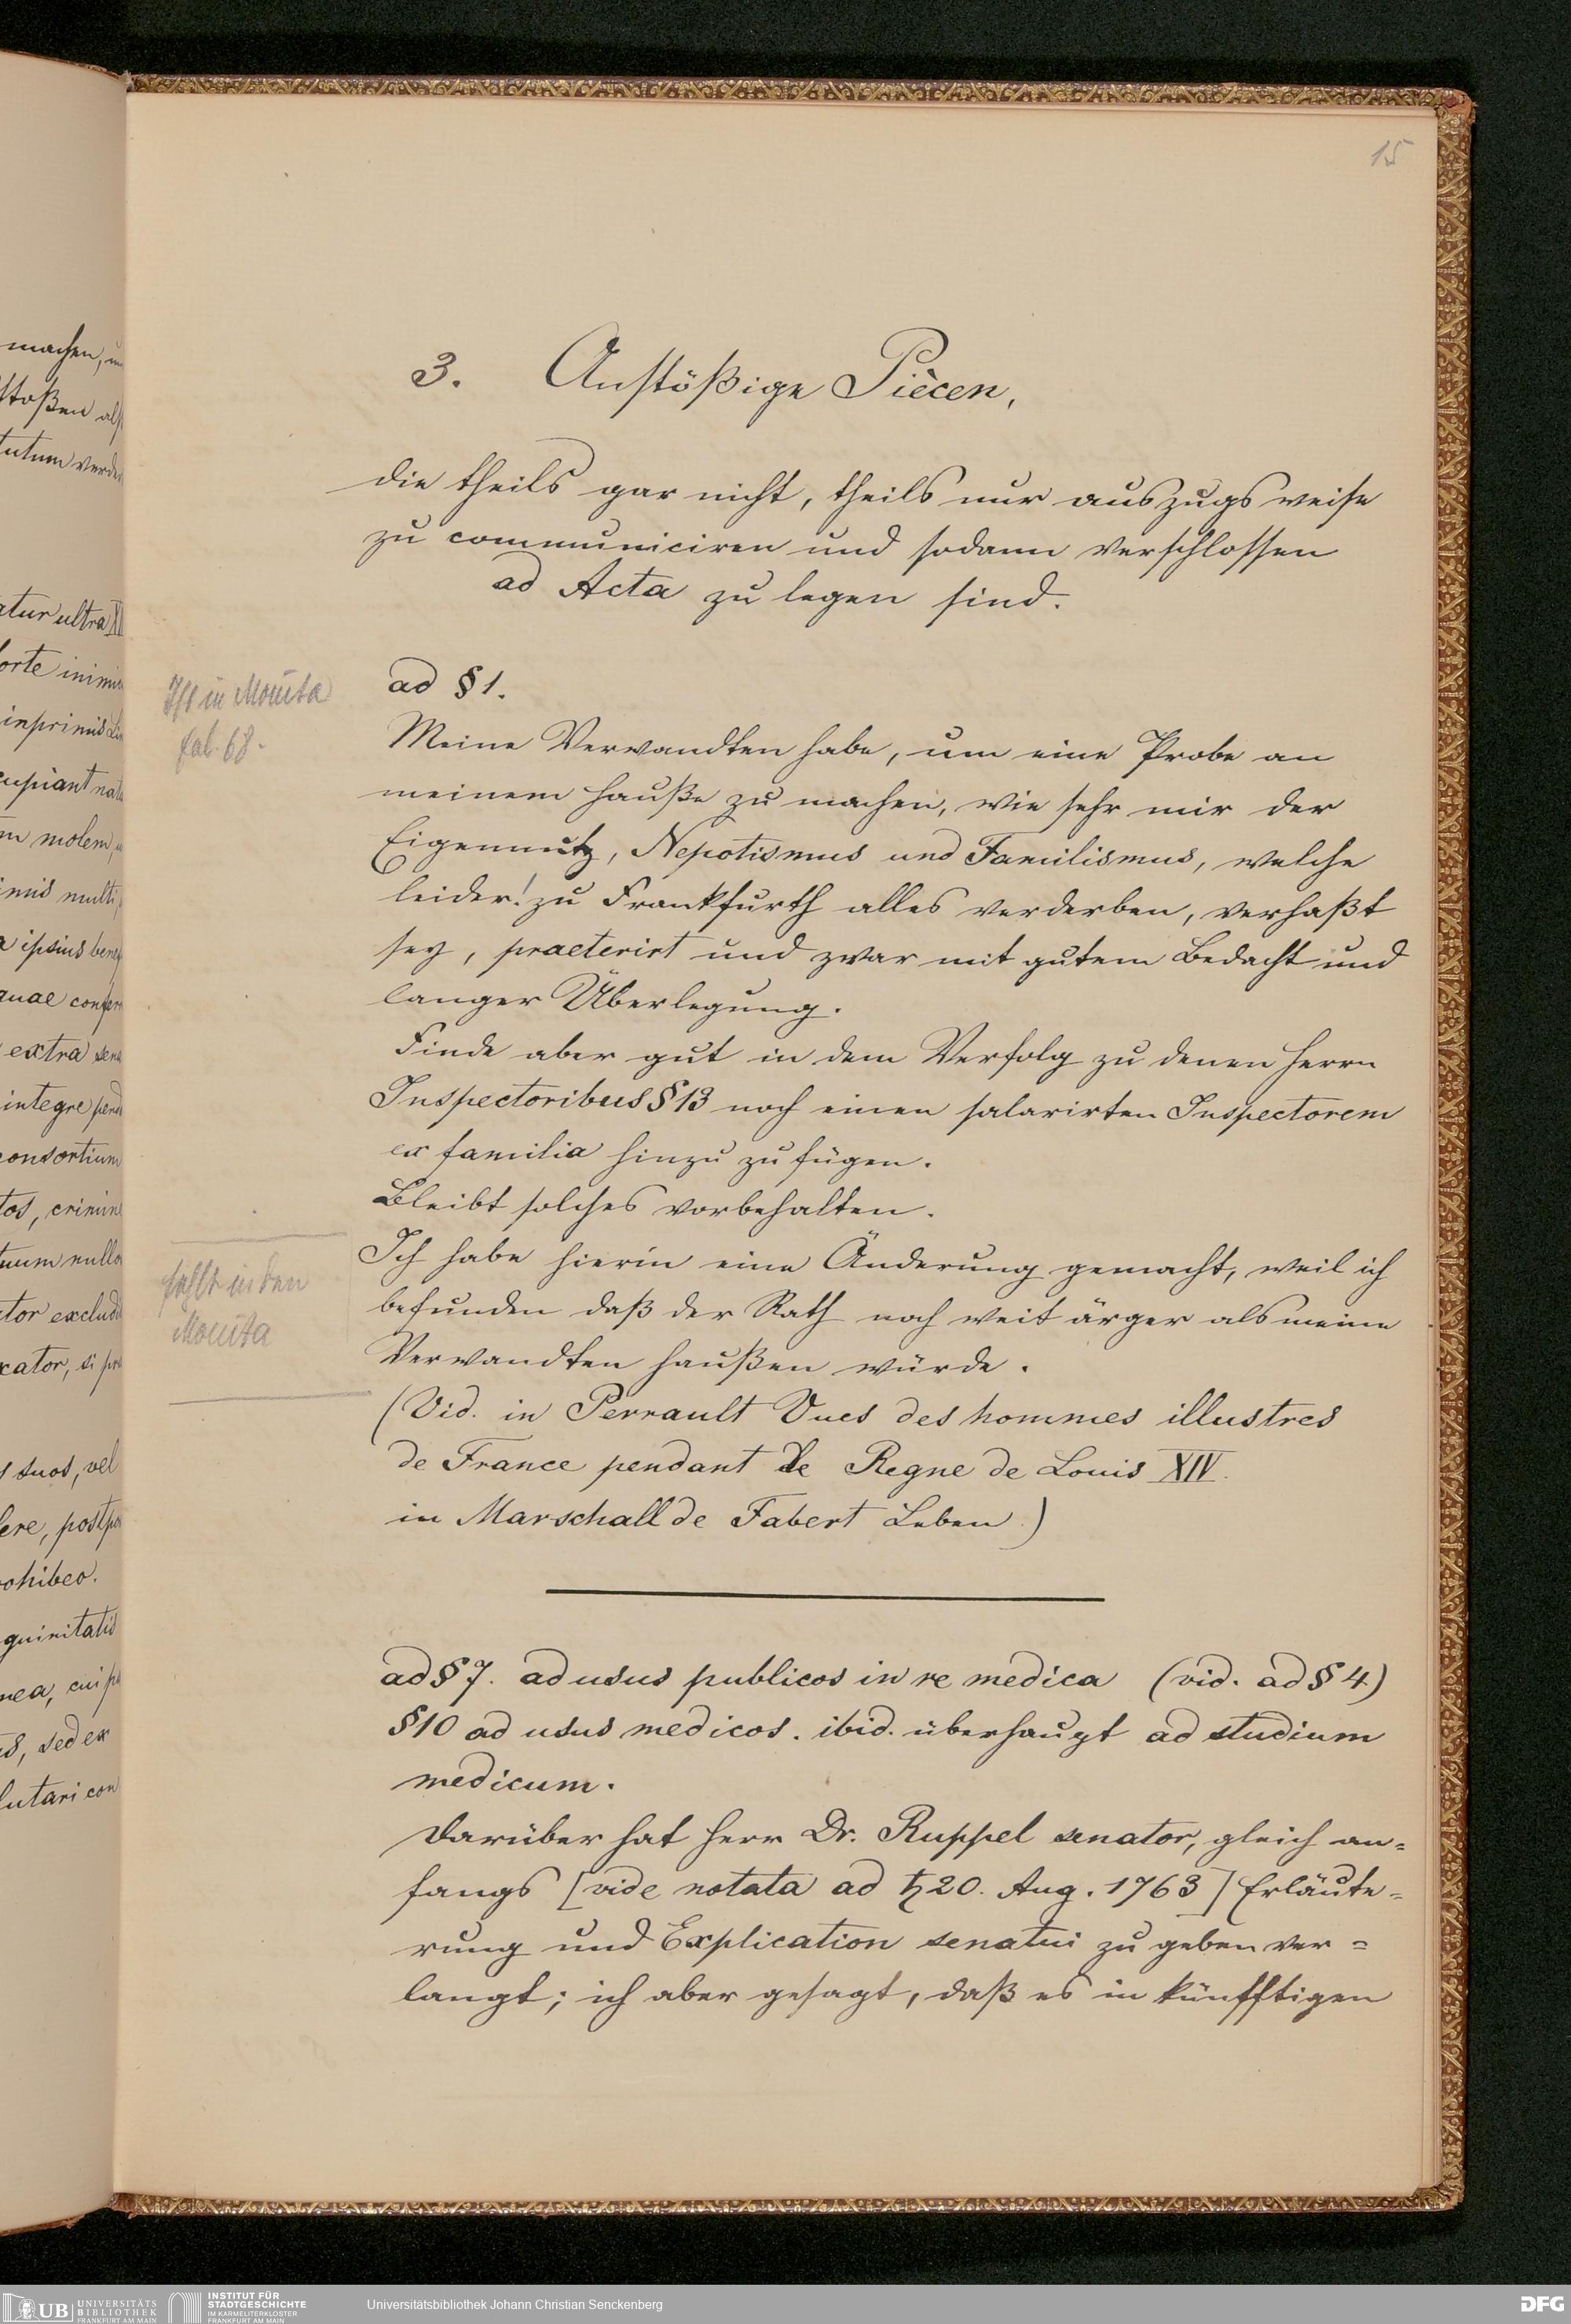 15
3. Anstößige Piècen,
die theils gar nicht, theils nur auszugsweise
zu communiciren und sodann verschlossen
ad Acta zu legen sind.
Ist in Monita
fol. 68.
ad § 1.
Meine Verwandten habe, um eine Probe an
meinem Hauße zu machen, wie sehr mir der
Eigennutz, Nepotismus und Familismus, welche
leider! zu Frankfurth alles verderben, verhaßt
sey, praeterirt und zwar mit gutem Bedacht und
langer Überlegung.
Finde aber gut in dem Verfolg zu denen Herrn
Inspectoribus § 13 noch einen salarirten Inspectorem
ex familia hinzu zu fügen.
Bleibt solches vorbehalten.
fehlt in den
Monita
Ich habe hierin eine Änderung gemacht, weil ich
befunden daß der Rath noch weit ärger als meine
Verwandten haußen würde.
(Vid. in Perrault Vues des hommes illustres
de France pendant le Regne de Louis XIV.
in Marschall de Fabert Leben.)
ad § 7. ad usus publicos in re medica (vid. ad § 4)
§ 10 ad usus medicos. ibid. überhaupt ad studium
medicum.
Darüber hat Herr Dr. Ruppel senator, gleich an=
fangs [vide notata ad ♄ 20. Aug. 1763] Erläute=
rung und Explication senatui zu geben ver=
langt; ich aber gesagt, daß es in künfftigen
machen,
stoßen
ultra XI
molem,
multi,
ipsius
extra
integre
consortium
tor
suos, vel
sed ex
UB UNIVERSITÄTS
BIBLIOTHEK
FRANKFURT AM MAIN
INSTITUT FÜR
STADTGESCHICHTE
IM KARMELITERKLOSTER
FRANKFURT AM MAIN
Universitätsbibliothek Johann Christian Senckenberg
DFG